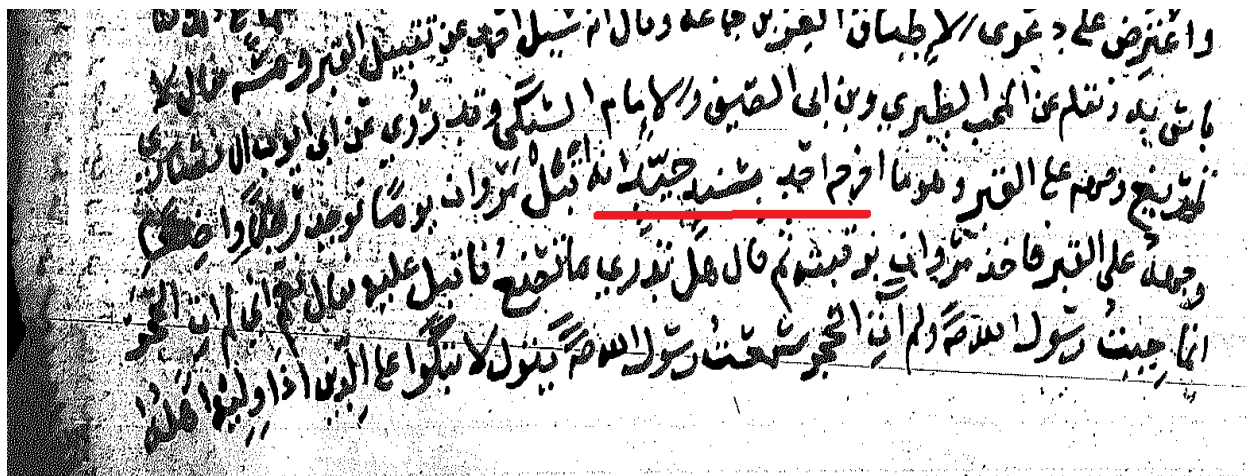 واعترض على دعوى الإطباق العز بن جماعة وقال انه سئل احمد عن تقبيل القبر ومسه فقال لا
باس به ونقله عن المحب الطبري وبن ابى الصيف والإمام السبكي وقد روي عن ابى ايوب الانصاري
وجهه على القبر وهو ما اخرجه احمد بسند جيد انه اقبل مروان يوما فوجد رجلا واضعا
وجهه على القبر فاخذ مروان برقبته ثم قال هل تدري ما تصنع فاقبل عليه فقال نعم انى لم ات الحجر
انما جيت رسول الله صـ ولم ات الحجر سمعت رسول الله صـ يقول لا تبكوا على الدين اذا وليه اهله